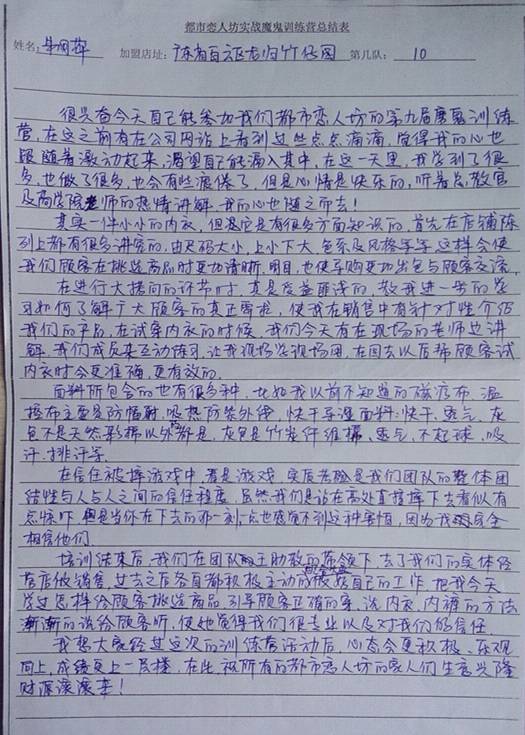 都市恋人坊实战魔鬼训练营总结表
姓名: 加盟店址: 第几队: 10
很兴奋今天自己能参加我们都市恋人坊的第九届魔鬼训练
营,在这之前有在公司网站上看到过些点点滴滴,觉得我的心也
跟随着激动起来,渴望自己能融入其中,在这一天里,我学到了很
多,也做了很多,也会有些疲倦了,但是心情是快乐的,听着总教官
及商学院老师的热情讲解,我的心也随之而去!
其实一件小小的内衣,但是它是有很多方面知识的,首先在店铺陈
列上都有很多讲究的,由尺码大小,上小下大,色系及风格等等,这样会使
我们顾客在挑选商品时更加清晰,明目,也使导购更加出色与顾客交流,
在进行大提问的环节时,真是受益匪浅的,教我进一步的学
习如何了解广大顾客的真正需求,使我在销售中有针对性介绍
我们的产品,在试穿内衣的时候,我们今天有在现场的老师边讲
解,我们成员来互动练习,让我现场学现场用,在回去以后帮顾客试
内衣时会更准确,更有效的.
面料所包含的也有很多种,比如我以前不知道的磁疗布,温
控布主要是防辐射,吸热防紫外线,快干导湿面料:快干,透气,灰
色不是天然彩棉以外的都是,灰色是竹炭纤维棉,透气,不起球,吸
汗,排汗等
在信任被摔游戏中,看是游戏,实质考验是我们团队的整体团
结性与人与人之间的信任程度,虽然我们是站在高处直接摔下去看似有
点惊吓,但是当你在下去的那一刻一点也感觉不到这种害怕,因为我完全
相信他们
培训结束后,我们在团队助教的带领下,去了我们的实体经
营店做销售,过去之后各自都积极主动的做好自己的工作,把我今天
学过怎样给顾客挑选商品,引导顾客正确的穿,洗内衣,内裤的方法
渐渐的说给顾客听,使她觉得我们很专业以及对我们的信任.
我想大家经过这次的训练营活动后,心态会更积极,乐观
向上,成绩更上一层楼,在此祝所有的都市恋人坊的家人们生意兴隆
财源滚滚来!